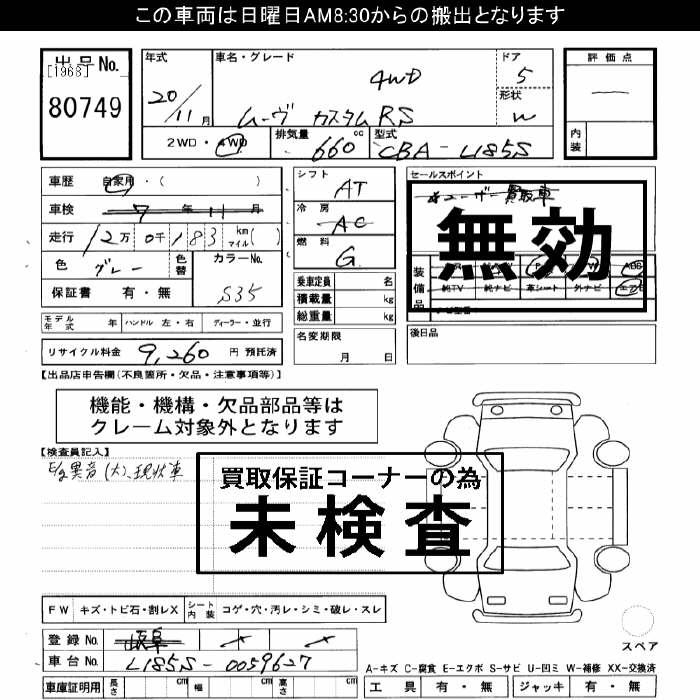 この車両は日曜日AM8:30からの搬出となります
出品No.
[1968]
80749
年式
20/11月
車名・グレード
4WD
ムーヴ カスタムRS
ドア
5
形状
W
評価点
内装
2WD・4WD
排気量
660 cc
型式
CBA-L185S
車歴 自家用・( )
車検 7年11月
走行 12万0千183 km マイル( )
色 グレー
色替
カラーNo.
S35
保証書 有・無
シフト
AT
冷房
AC
燃料
G
乗車定員 名
積載量 kg
総重量 kg
セールスポイント
ユーザー買取車
無効
装備品
純TV 純ナビ 革シート 外ナビ エアB
ABS
モデル年式 年 ハンドル 左・右 ディーラー・並行
リサイクル料金 9,260 円 預託済
名変期限
月 日
後日品
【出品店申告欄(不良箇所・欠品・注意事項等)】
機能・機構・欠品部品等は
クレーム対象外となります
【検査員記入】
E/g異音(大)、現状車
買取保証コーナーの為
未検査
FW キズ・トビ石・割レX シート内装 コゲ・穴・汚レ・シミ・破レ・スレ
登録No. 岐阜
車台No. L185S-0059627
車庫証明用 長さ cm 幅 cm 高さ cm
スペア
A-キズ C-腐食 E-エクボ S-サビ U-凹ミ W-補修 XX-交換済
工具 有・無 ジャッキ 有・無